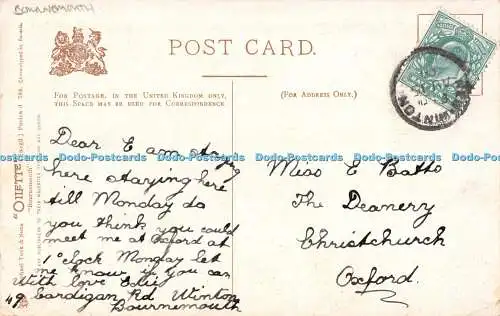 BOURNEMOUTH
POST CARD.
FOR POSTAGE, IN THE UNITED KINGDOM ONLY,
THIS SPACE MAY BE USED FOR CORRESPONDENCE.
(FOR ADDRESS ONLY.)
WINTON
Dear E am
here staying here
till Monday do
you think you could
meet me at Oxford at
1 o'clock Monday let
me know if you can
With love
49 Cardigan Rd, Winton
Bournemouth
Miss E Batts
The Deanery
Christchurch
Oxford.
"OILETTE"
"Bournemouth"
Dodo-Postcards Dodo-Postcards Dodo-Postcards Dodo-Postcards